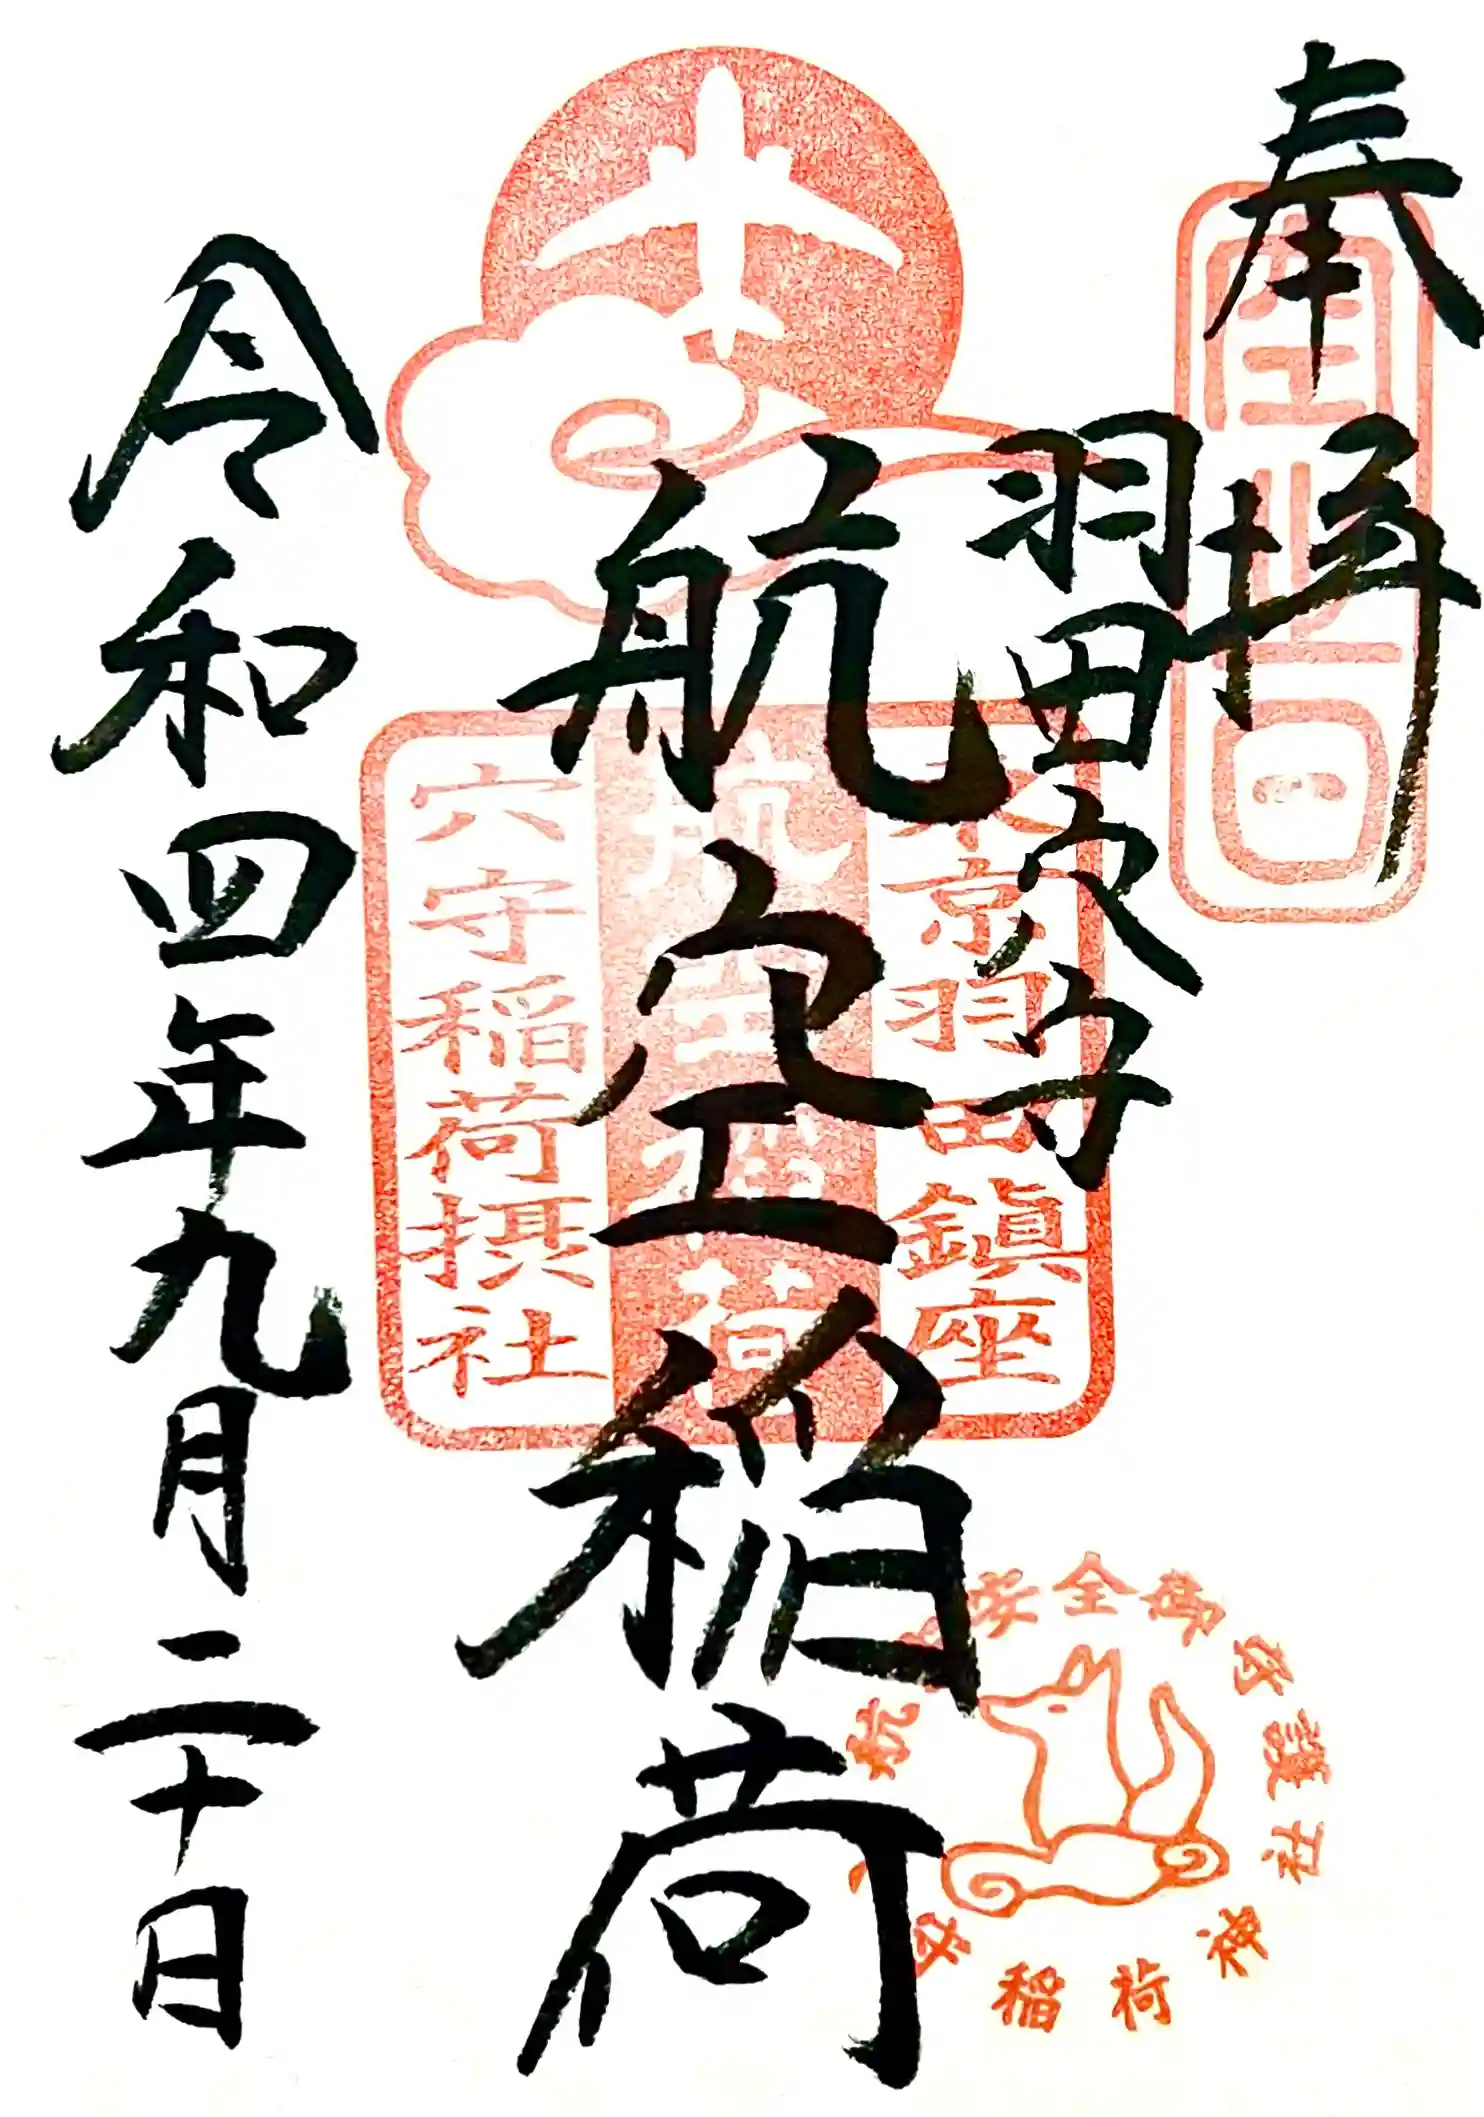 奉拝
空之日
羽田穴守
航空稲荷
東京羽田鎮座
航空稲荷
穴守稲荷摂社
令和四年九月二十日
航空安全御守護
穴守稲荷神社